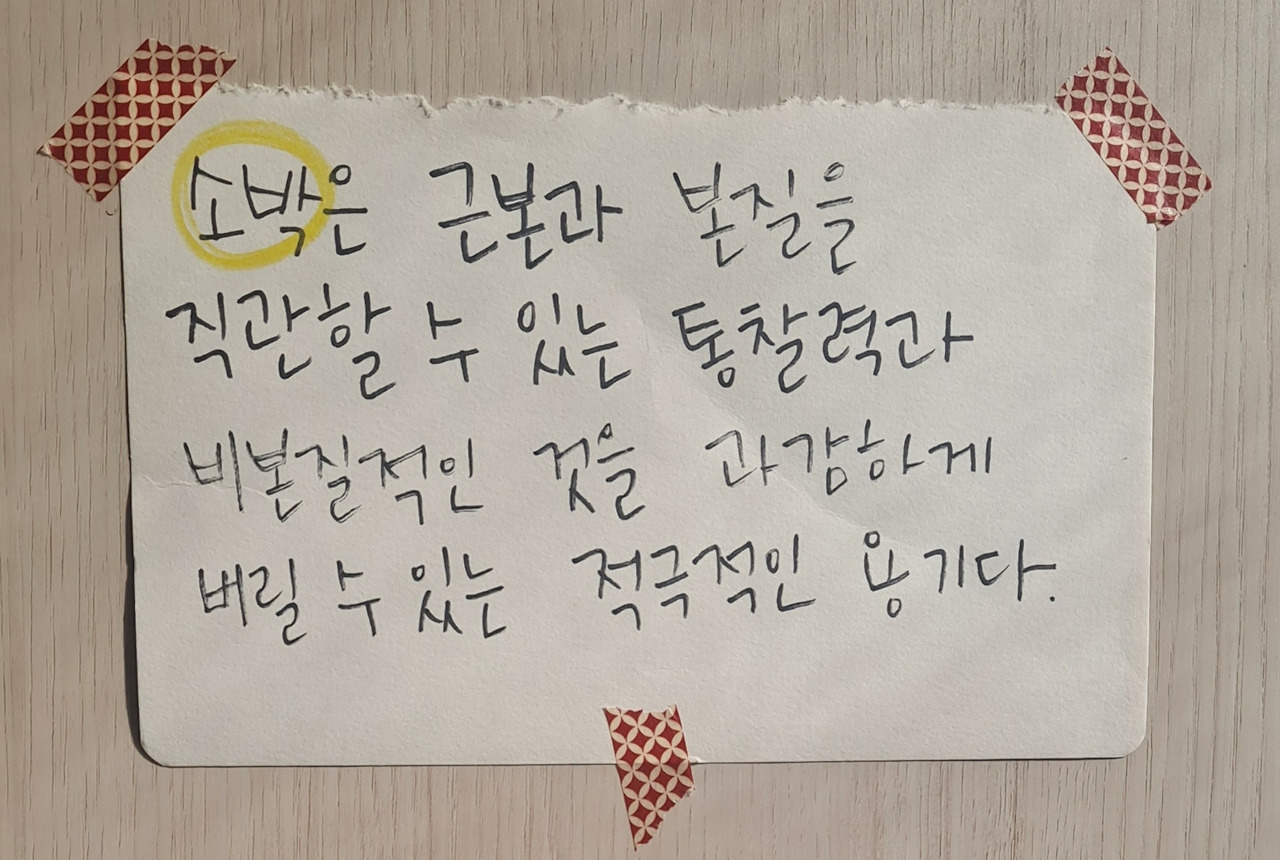 소박은 근본과 본질을
직관할 수 있는 통찰력과
비본질적인 것을 과감하게
버릴 수 있는 적극적인 용기다.